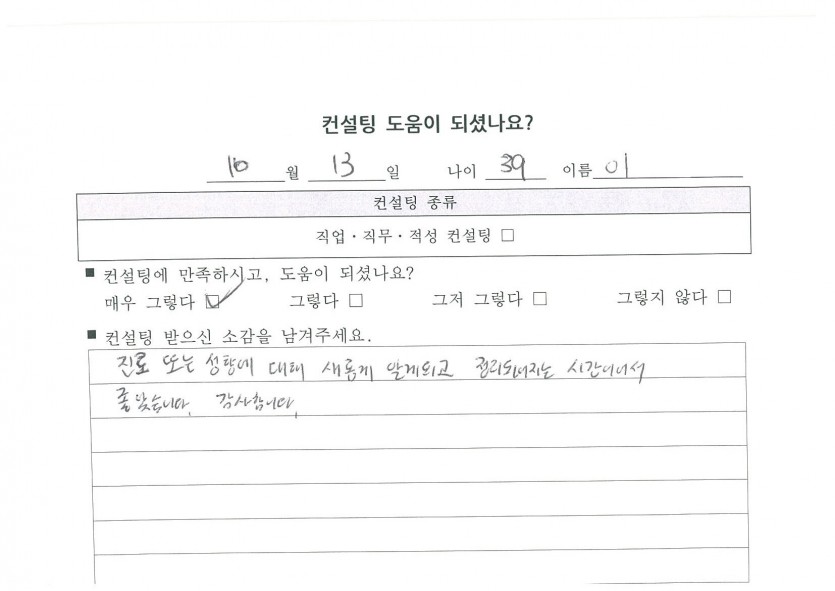 컨설팅 도움이 되셨나요?
10 월 13 일 나이 39 이름 이
컨설팅 종류
직업·직무·적성 컨설팅 □
■ 컨설팅에 만족하시고, 도움이 되셨나요?
매우 그렇다 ☑ 그렇다 □ 그저 그렇다 □ 그렇지 않다 □
■ 컨설팅 받으신 소감을 남겨주세요.
진로 또는 성향에 대해 새롭게 알게되고 정리되어지는 시간이어서
좋았습니다. 감사합니다.